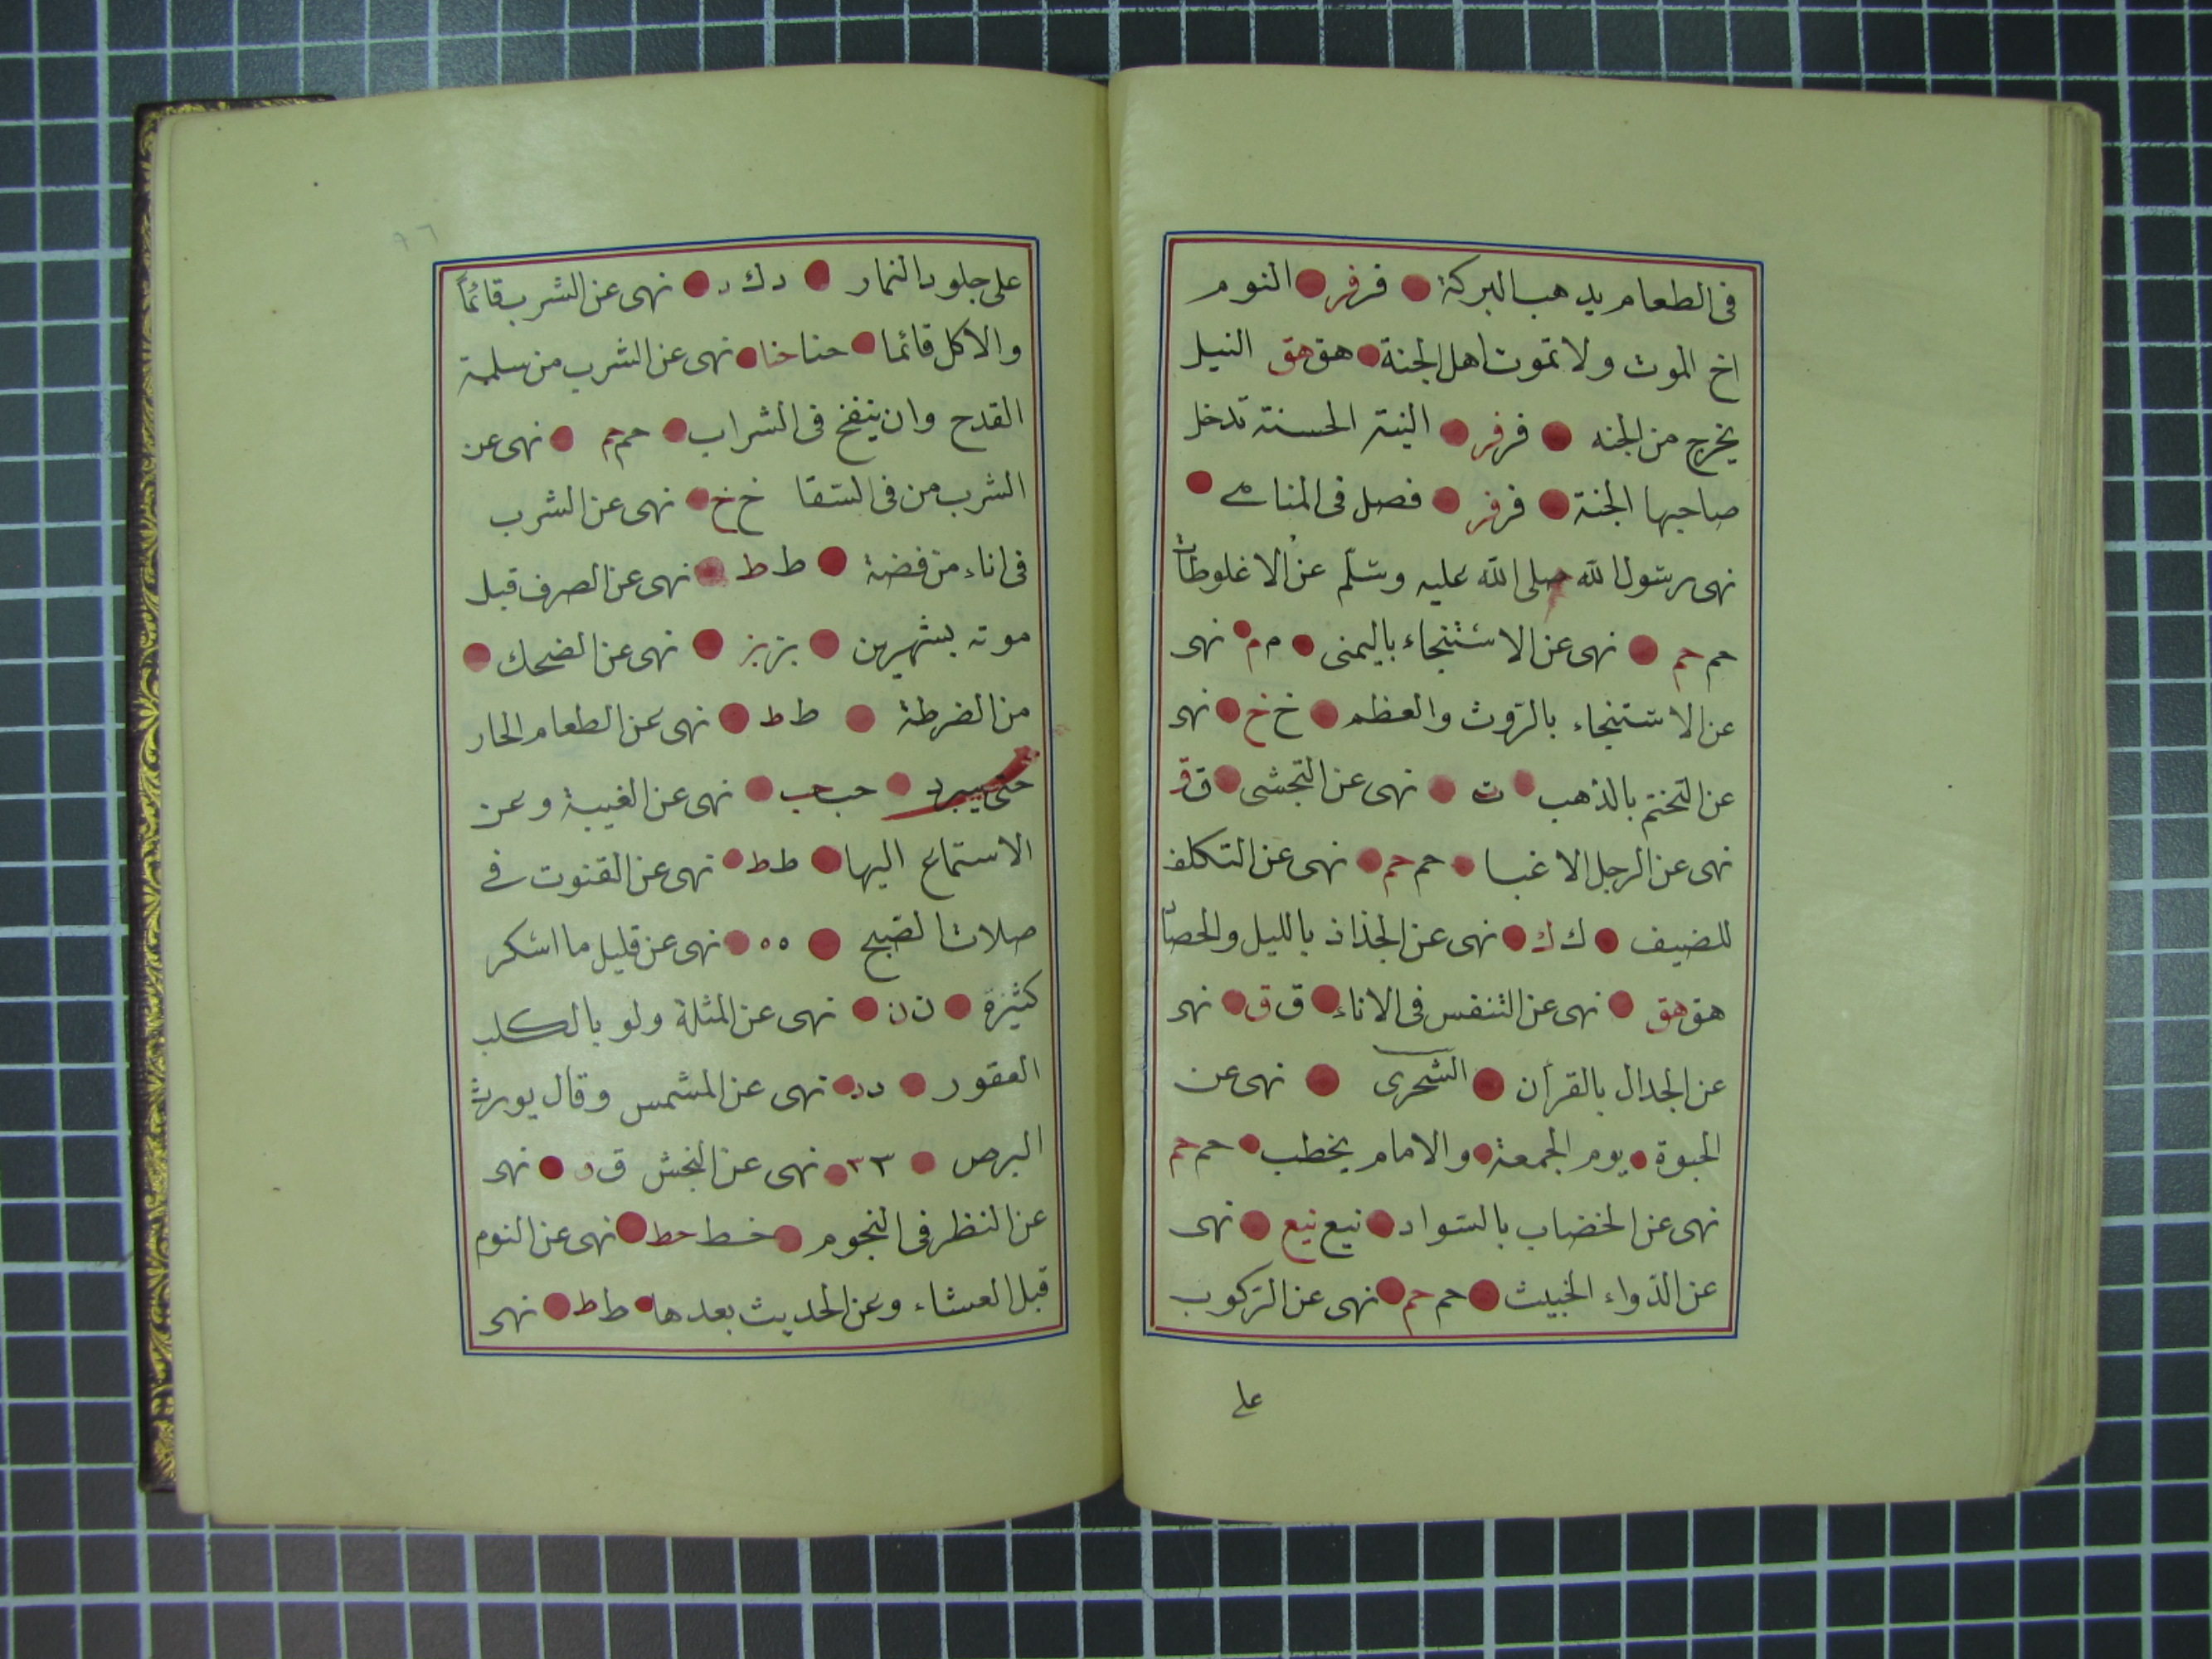 فى الطعام يدهب البركة فر فر النوم
اخ الموت ولا تموت اهل الجنة هق هق النيل
يخرج من الجنه فر فر النية الحسنة تدخل
صاحبها الجنة فر فر فصل فى المناهى
نهى رسول الله صلى الله عليه وسلّم عن الاغلوطات
حم حم نهى عن الاستنجاء باليمنى م م نهى
عن الاستنجاء بالرّوث والعظم خ خ نهى
عن التختم بالذهب ت نهى عن التجشى ق ق
نهى عن الرجل الا غبا حم حم نهى عن التكلف
للضيف ك ك نهى عن الجذاذ بالليل والحصاد
هق هق نهى عن التنفس فى الاناء ق ق نهى
عن الجدال بالقرأن الشحرى نهى عن
الحبوة يوم الجمعة والامام يخطب حم حم
نهى عن الخضاب بالسّواد نيع نيع نهى
عن الدّواء الخبيث حم حم نهى عن الرّكوب
على
٩٦
على جلود النمار د ك د نهى عن الشرب قائماً
والاكل قائما حنا حنا نهى عن الشرب من سلمة
القدح وان ينفخ فى الشراب حم حم نهى عن
الشرب من فى السّقا خ خ نهى عن الشرب
فى اناء من فضة ط ط نهى عن الصرف قبل
موته بشهرين بز بز نهى عن الضحك
من الضرطة ط ط نهى عن الطعام الحار
حتى يبرد حب حب نهى عن الغيبة وعن
الاستماع اليها ط ط نهى عن القنوت فى
صلات الصّبح ه ه نهى عن قليل ما اسكر
كثيرة ن ن نهى عن المثلة ولو بالكلب
العقور د د نهى عن المشمس وقال يورث
البرص ٣ ٣ نهى عن النجش ق ق نهى
عن النظر فى النجوم خط خط نهى عن النوم
قبل العشاء وعن الحديث بعدها ط ط نهى